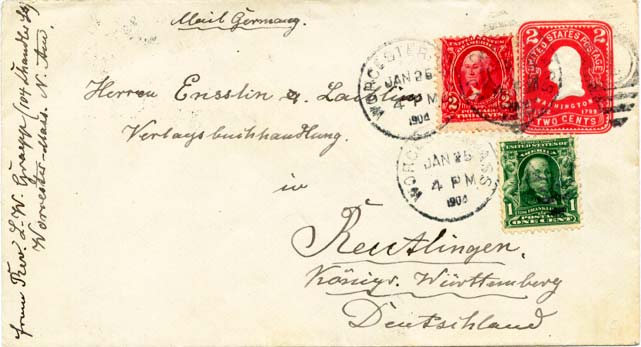 Mail Germany.
Herren Ensslin & Laiblin
Verlagsbuchhandlung.
in
Reutlingen.
Königr. Württemberg
Deutschland
from Rev. L. W. (104 Chandler St
Worcester-Mass. N. Am.
WORCESTER,
JAN 25
4 PM
1904
WORC ASS
JAN 25
4 PM
1904
2 2
TWO CENTS
2 2
UNITED STATES POSTAGE
WASHINGTON
1732 1799
TWO CENTS
UNITED STATES OF
AMERICA
FRANKLIN
1 POSTAGE 1
ONE CENT